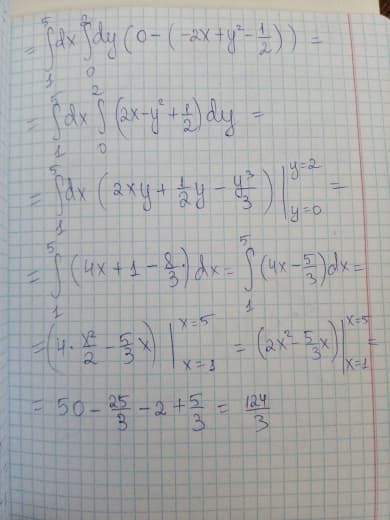 = ∫₁⁵ dx ∫₀² dy (0 - (-2x + y² - 1/2)) =
= ∫₁⁵ dx ∫₀² (2x - y² + 1/2) dy =
= ∫₁⁵ dx (2xy + 1/2 y - y³/3) |_{y=0}^{y=2} =
= ∫₁⁵ (4x + 1 - 8/3) dx = ∫₁⁵ (4x - 5/3) dx =
= (4 · x²/2 - 5/3 x) |_{x=1}^{x=5} = (2x² - 5/3 x) |_{x=1}^{x=5} =
= 50 - 25/3 - 2 + 5/3 = 124/3